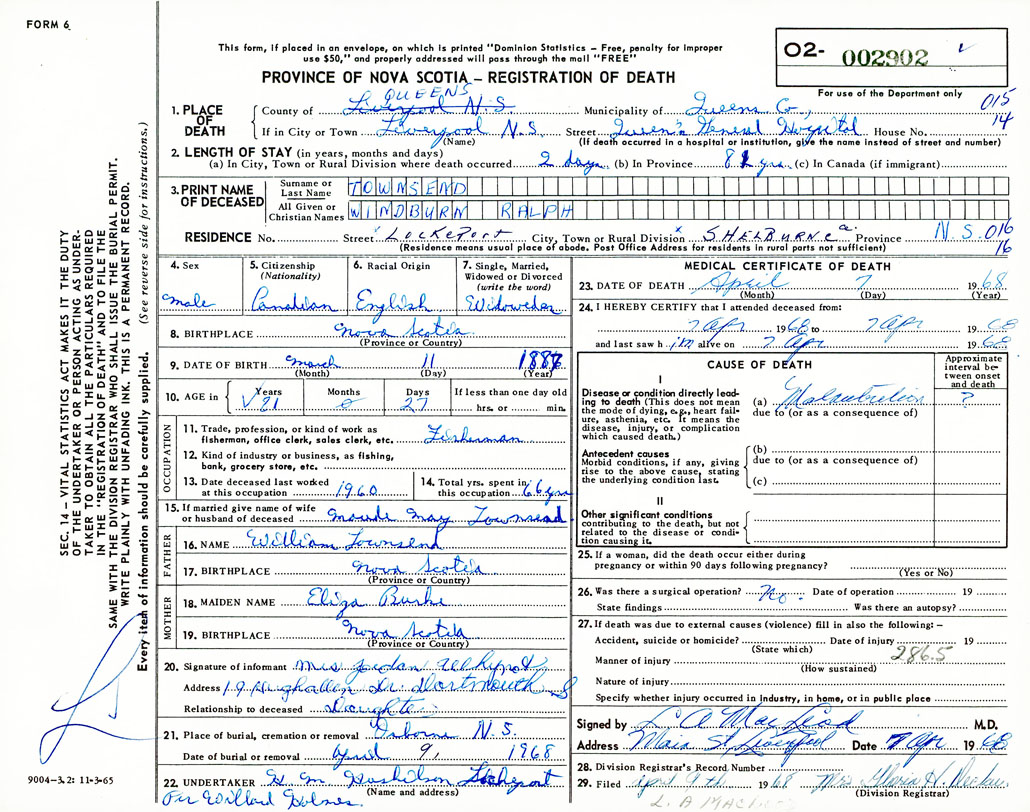 FORM 6
This form, if placed in an envelope, on which is printed "Dominion Statistics – Free, penalty for improper
use $50," and properly addressed will pass through the mail "FREE"
PROVINCE OF NOVA SCOTIA – REGISTRATION OF DEATH
O2- 002902
For use of the Department only
015
14
1. PLACE OF DEATH
QUEENS
County of Liverpool N.S Municipality of Queens Co.,
If in City or Town Liverpool N.S. Street Queen's General Hospital House No.
(Name) (If death occurred in a hospital or institution, give the name instead of street and number)
2. LENGTH OF STAY (in years, months and days)
(a) In City, Town or Rural Division where death occurred 2 days (b) In Province 81 yrs. (c) In Canada (if immigrant)
3. PRINT NAME OF DECEASED
Surname or Last Name TOWNSEND
All Given or Christian Names WINDBURN RALPH
RESIDENCE No. Street LOCKEPORT City, Town or Rural Division SHELBURNE Province N.S. 016
16
(Residence means usual place of abode. Post Office Address for residents in rural parts not sufficient)
4. Sex
male
5. Citizenship
(Nationality)
Canadian
6. Racial Origin
English
7. Single, Married,
Widowed or Divorced
(write the word)
Widowed
8. BIRTHPLACE Nova Scotia
(Province or Country)
9. DATE OF BIRTH March 11 1887
(Month) (Day) (Year)
10. AGE in
Years
81
Months
0
Days
27
If less than one day old
hrs. or min.
OCCUPATION
11. Trade, profession, or kind of work as
fisherman, office clerk, sales clerk, etc. Fisherman
12. Kind of industry or business, as fishing,
bank, grocery store, etc.
13. Date deceased last worked
at this occupation 1960
14. Total yrs. spent in
this occupation 66 yrs
15. If married give name of wife
or husband of deceased Maude May Townsend
FATHER
16. NAME William Townsend
17. BIRTHPLACE Nova Scotia
(Province or Country)
MOTHER
18. MAIDEN NAME Eliza Burke
19. BIRTHPLACE Nova Scotia
(Province or Country)
20. Signature of informant Mrs
Address 19 Dr. Dartmouth
Relationship to deceased Daughter
21. Place of burial, cremation or removal Osborne N.S.
Date of burial or removal April 9, 1968
22. UNDERTAKER Lockeport
(Name and address)
Per Willard Holmes
MEDICAL CERTIFICATE OF DEATH
23. DATE OF DEATH April 7 1968
(Month) (Day) (Year)
24. I HEREBY CERTIFY that I attended deceased from:
7 Apr 1968 to 7 Apr 1968
and last saw him alive on 7 Apr 1968
CAUSE OF DEATH
Approximate
interval be-
tween onset
and death
I
Disease or condition directly lead-
ing to death (This does not mean
the mode of dying, e.g., heart fail-
ure, asthenia, etc. It means the
disease, injury, or complication
which caused death.)
(a) Malnutrition ?
due to (or as a consequence of)
Antecedent causes
Morbid conditions, if any, giving
rise to the above cause, stating
the underlying condition last.
(b)
due to (or as a consequence of)
(c)
II
Other significant conditions
contributing to the death, but not
related to the disease or condi-
tion causing it.
25. If a woman, did the death occur either during
pregnancy or within 90 days following pregnancy?
(Yes or No)
26. Was there a surgical operation? No. Date of operation 19
State findings Was there an autopsy?
27. If death was due to external causes (violence) fill in also the following: –
Accident, suicide or homicide? Date of injury 19
(State which) 286.5
Manner of injury
(How sustained)
Nature of injury
Specify whether injury occurred in industry, in home, or in public place
Signed by L A MacLeod M.D.
Address Main St Liverpool Date 7 Apr 1968
28. Division Registrar's Record Number
29. Filed April 9th 1968 Mrs H.
(Division Registrar)
SEC. 14 – VITAL STATISTICS ACT MAKES IT THE DUTY
OF THE UNDERTAKER OR PERSON ACTING AS UNDER-
TAKER TO OBTAIN ALL THE PARTICULARS REQUIRED
IN THE "REGISTRATION OF DEATH" AND TO FILE THE
SAME WITH THE DIVISION REGISTRAR WHO SHALL ISSUE THE BURIAL PERMIT.
WRITE PLAINLY WITH UNFADING INK. THIS IS A PERMANENT RECORD.
Every item of information should be carefully supplied. (See reverse side for instructions.)
9004-3.2: 11-3-65